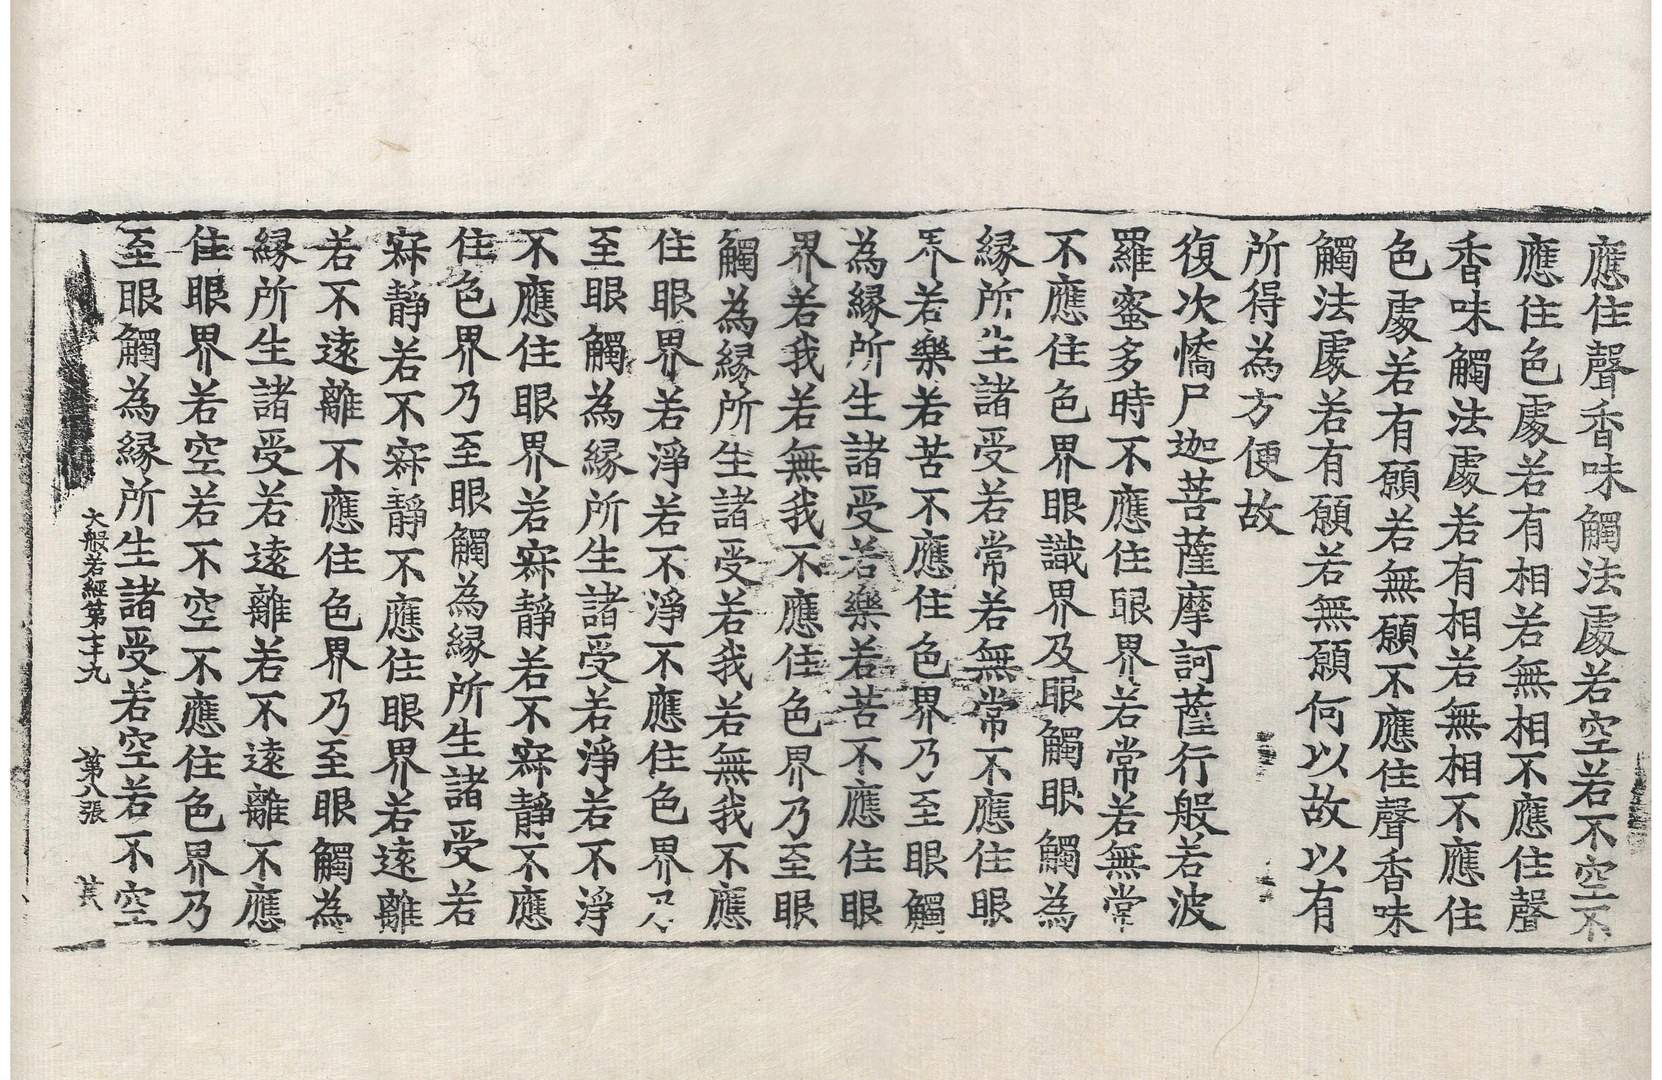 應住聲香味觸法處若空若不空不
應住色處若有相若無相不應住聲
香味觸法處若有相若無相不應住
色處若有願若無願不應住聲香味
觸法處若有願若無願何以故以有
所得為方便故
復次憍尸迦菩薩摩訶薩行般若波
羅蜜多時不應住眼界若常若無常
不應住色界眼識界及眼觸眼觸為
緣所生諸受若常若無常不應住眼
界若樂若苦不應住色界乃至眼觸
為緣所生諸受若樂若苦不應住眼
界若我若無我不應住色界乃至眼
觸為緣所生諸受若我若無我不應
住眼界若淨若不淨不應住色界乃
至眼觸為緣所生諸受若淨若不淨
不應住眼界若寂靜若不寂靜不應
住色界乃至眼觸為緣所生諸受若
寂靜若不寂靜不應住眼界若遠離
若不遠離不應住色界乃至眼觸為
緣所生諸受若遠離若不遠離不應
住眼界若空若不空不應住色界乃
至眼觸為緣所生諸受若空若不空
大般若經第七十九 第八張 荒